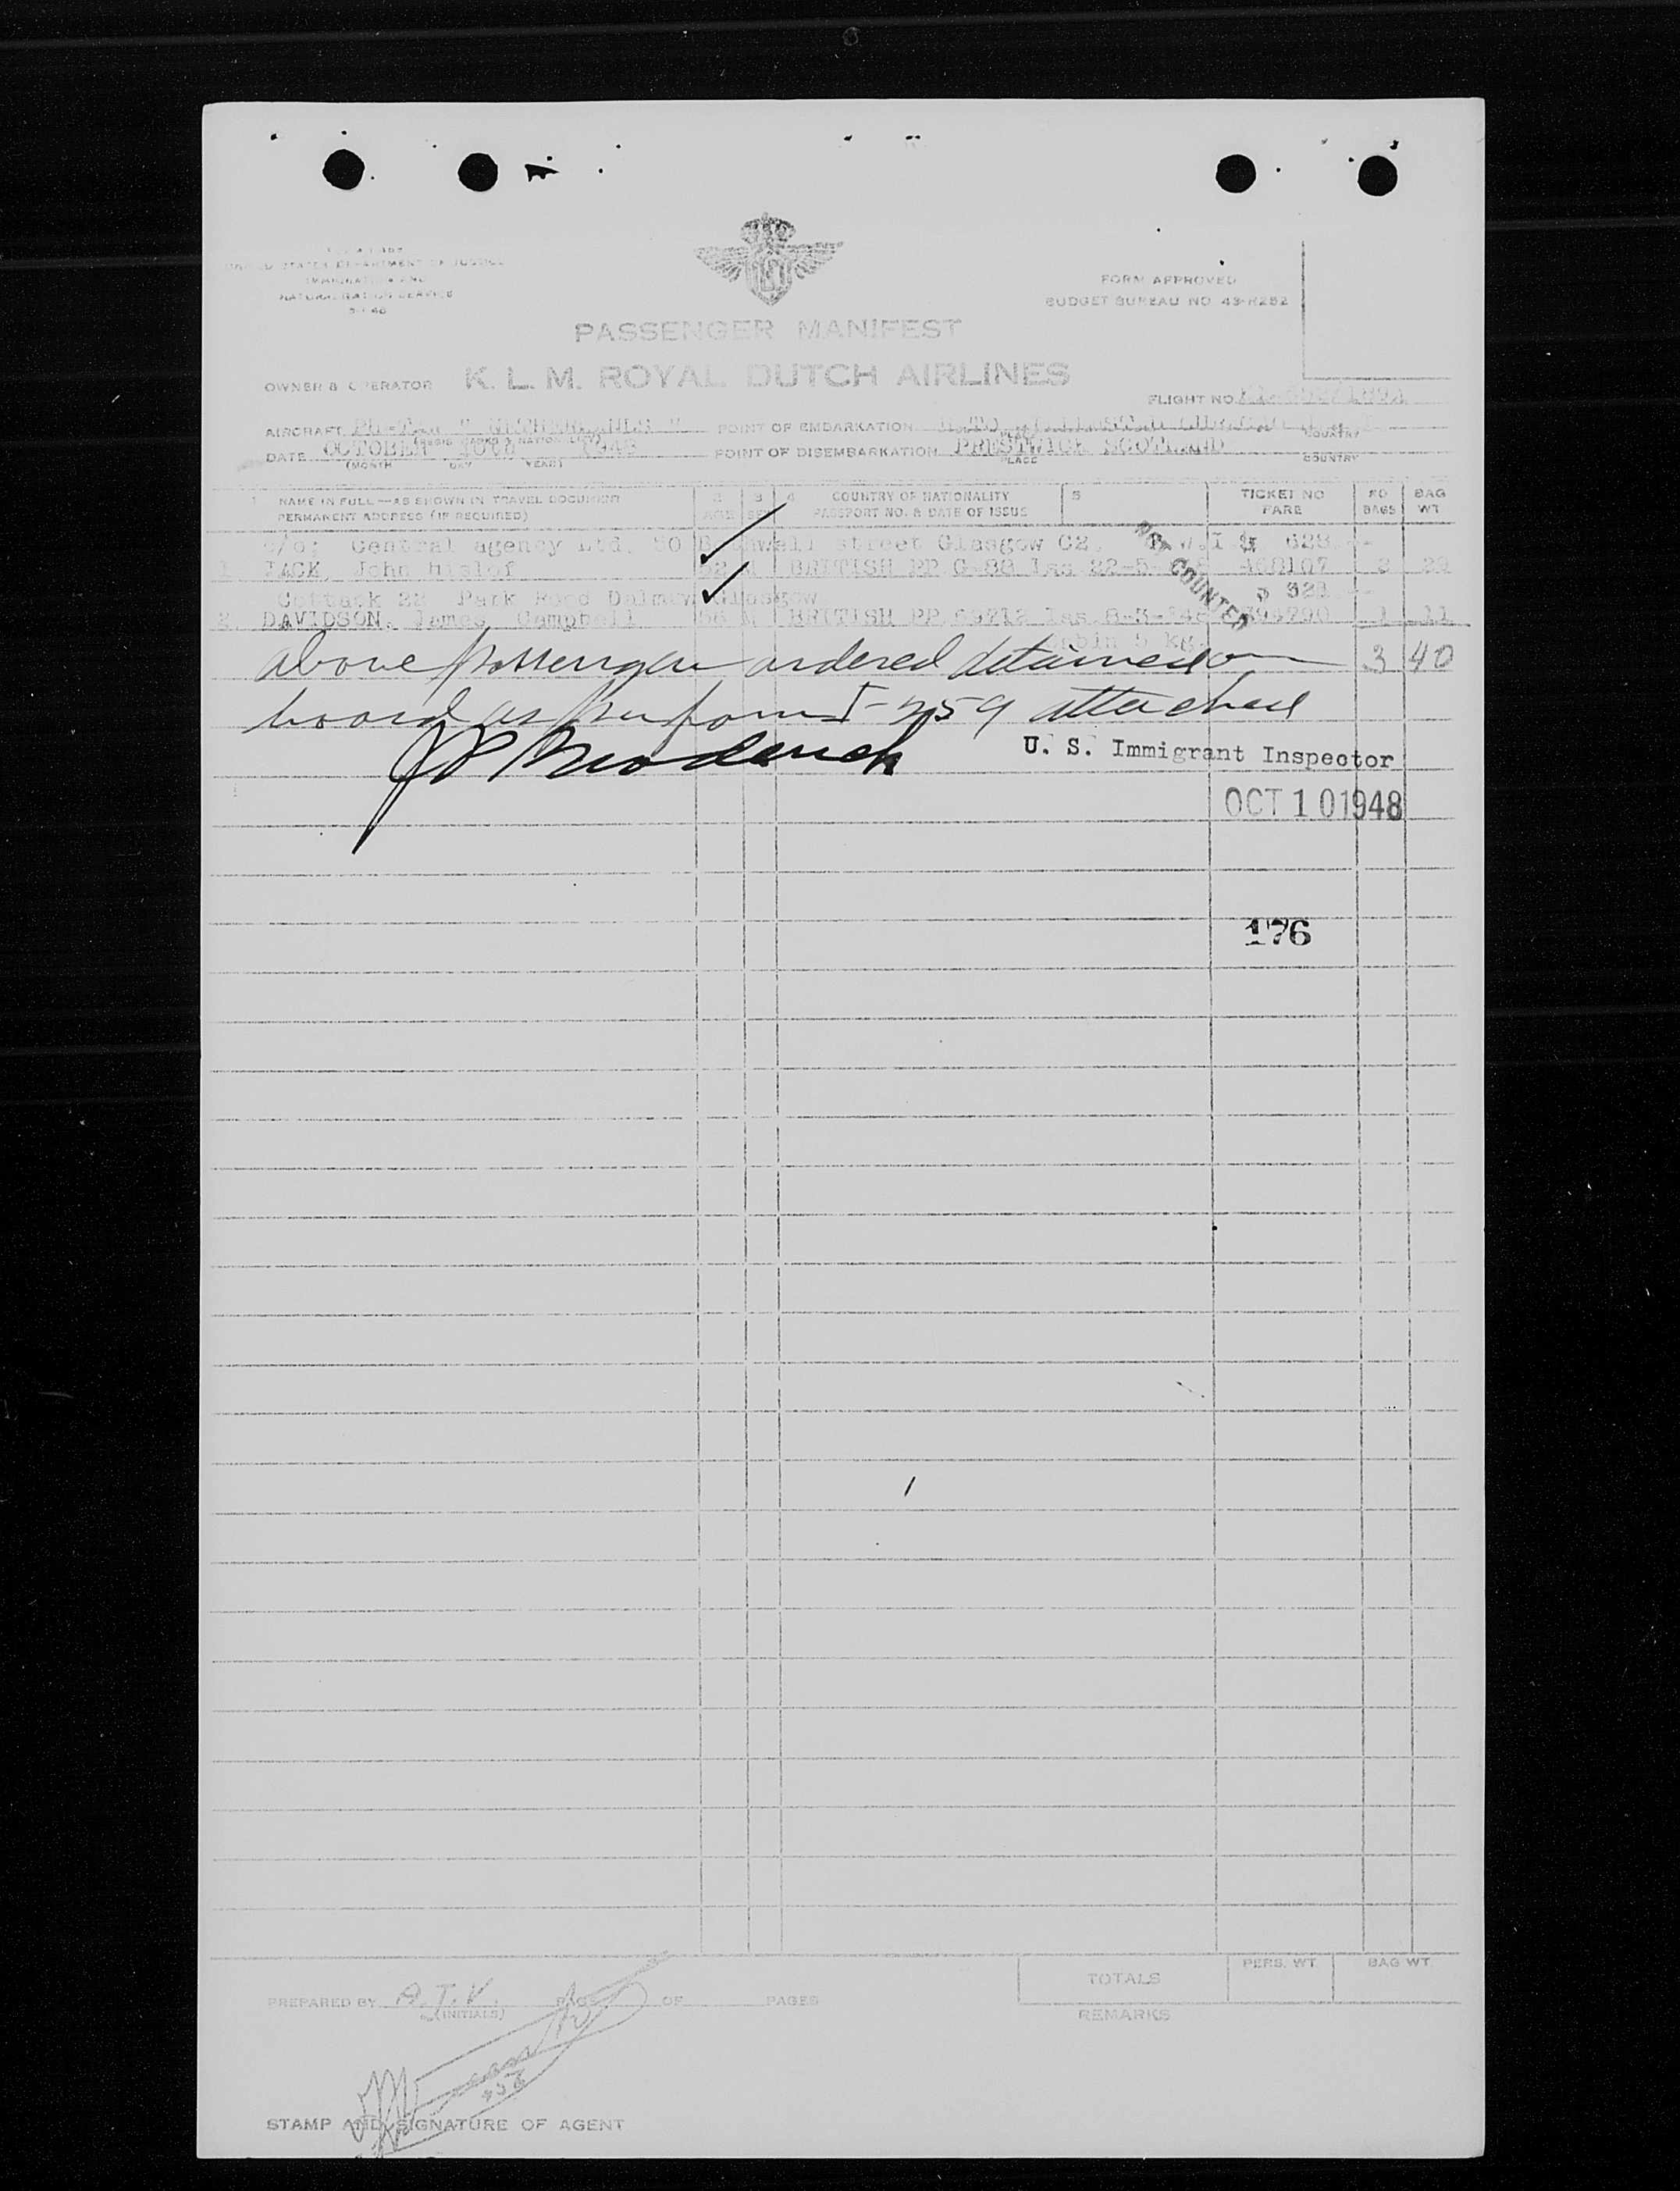 UNITED STATES DEPARTMENT OF JUSTICE
IMMIGRATION AND
NATURALIZATION SERVICE
FORM APPROVED
BUDGET BUREAU NO 43-R252
PASSENGER MANIFEST
OWNER & OPERATOR K. L. M. ROYAL DUTCH AIRLINES
FLIGHT NO
AIRCRAFT " NETHERLANDS " POINT OF EMBARKATION
(REGIS. MARKS & NATIONALITY) PLACE COUNTRY
DATE OCTOBER 10th 1948 POINT OF DISEMBARKATION PRESTWICK SCOTLAND
(MONTH DAY YEAR) PLACE COUNTRY
1 NAME IN FULL—AS SHOWN IN TRAVEL DOCUMENT 2 3 4 COUNTRY OF NATIONALITY 5 TICKET NO NO BAG
PERMANENT ADDRESS (IF REQUIRED) AGE SEX PASSPORT NO. & DATE OF ISSUE FARE BAGS WT
c/o: Central agency Ltd. 50 street Glasgow C2. $ 628
1 JACK, John Hislof 52 M BRITISH PP C-88 Iss 22-5- 468107 2 29
22 Park Road Dalmuw Glasgow
NOT COUNTED
2. DAVIDSON, James Campbell 56 M BRITISH PP 69712 Iss. 8-3-'48 1 11
Cabin 5 kg.
above passenger ordered detained on 3 40
board as per form I-259 attached
U. S. Immigrant Inspector
OCT 10 1948
176
TOTALS PERS. WT. BAG WT.
PREPARED BY A.T.V. PAGE OF PAGES
(INITIALS)
REMARKS
STAMP AND SIGNATURE OF AGENT